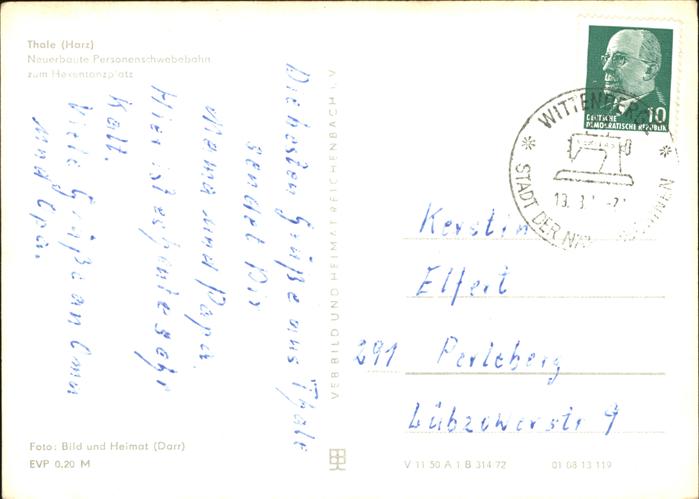 Thale (Harz)
Neuerbaute Personenschwebebahn
zum Hexentanzplatz
Die besten Grüße aus Thale
sendet Dir
Mama und Papa.
Hier ist es heute sehr
kalt.
Viele Grüße an Oma
und Opa.
Foto: Bild und Heimat (Darr)
EVP 0.20 M
VEB BILD UND HEIMAT REICHENBACH I. V.
V 11 50 A 1 B 314 72
01 08 13 119
10
DEUTSCHE
DEMOKRATISCHE REPUBLIK
WITTENBERGE
STADT DER
13. 3.
Kerstin
Elfert
291 Perleberg
Lübzowerstr 9